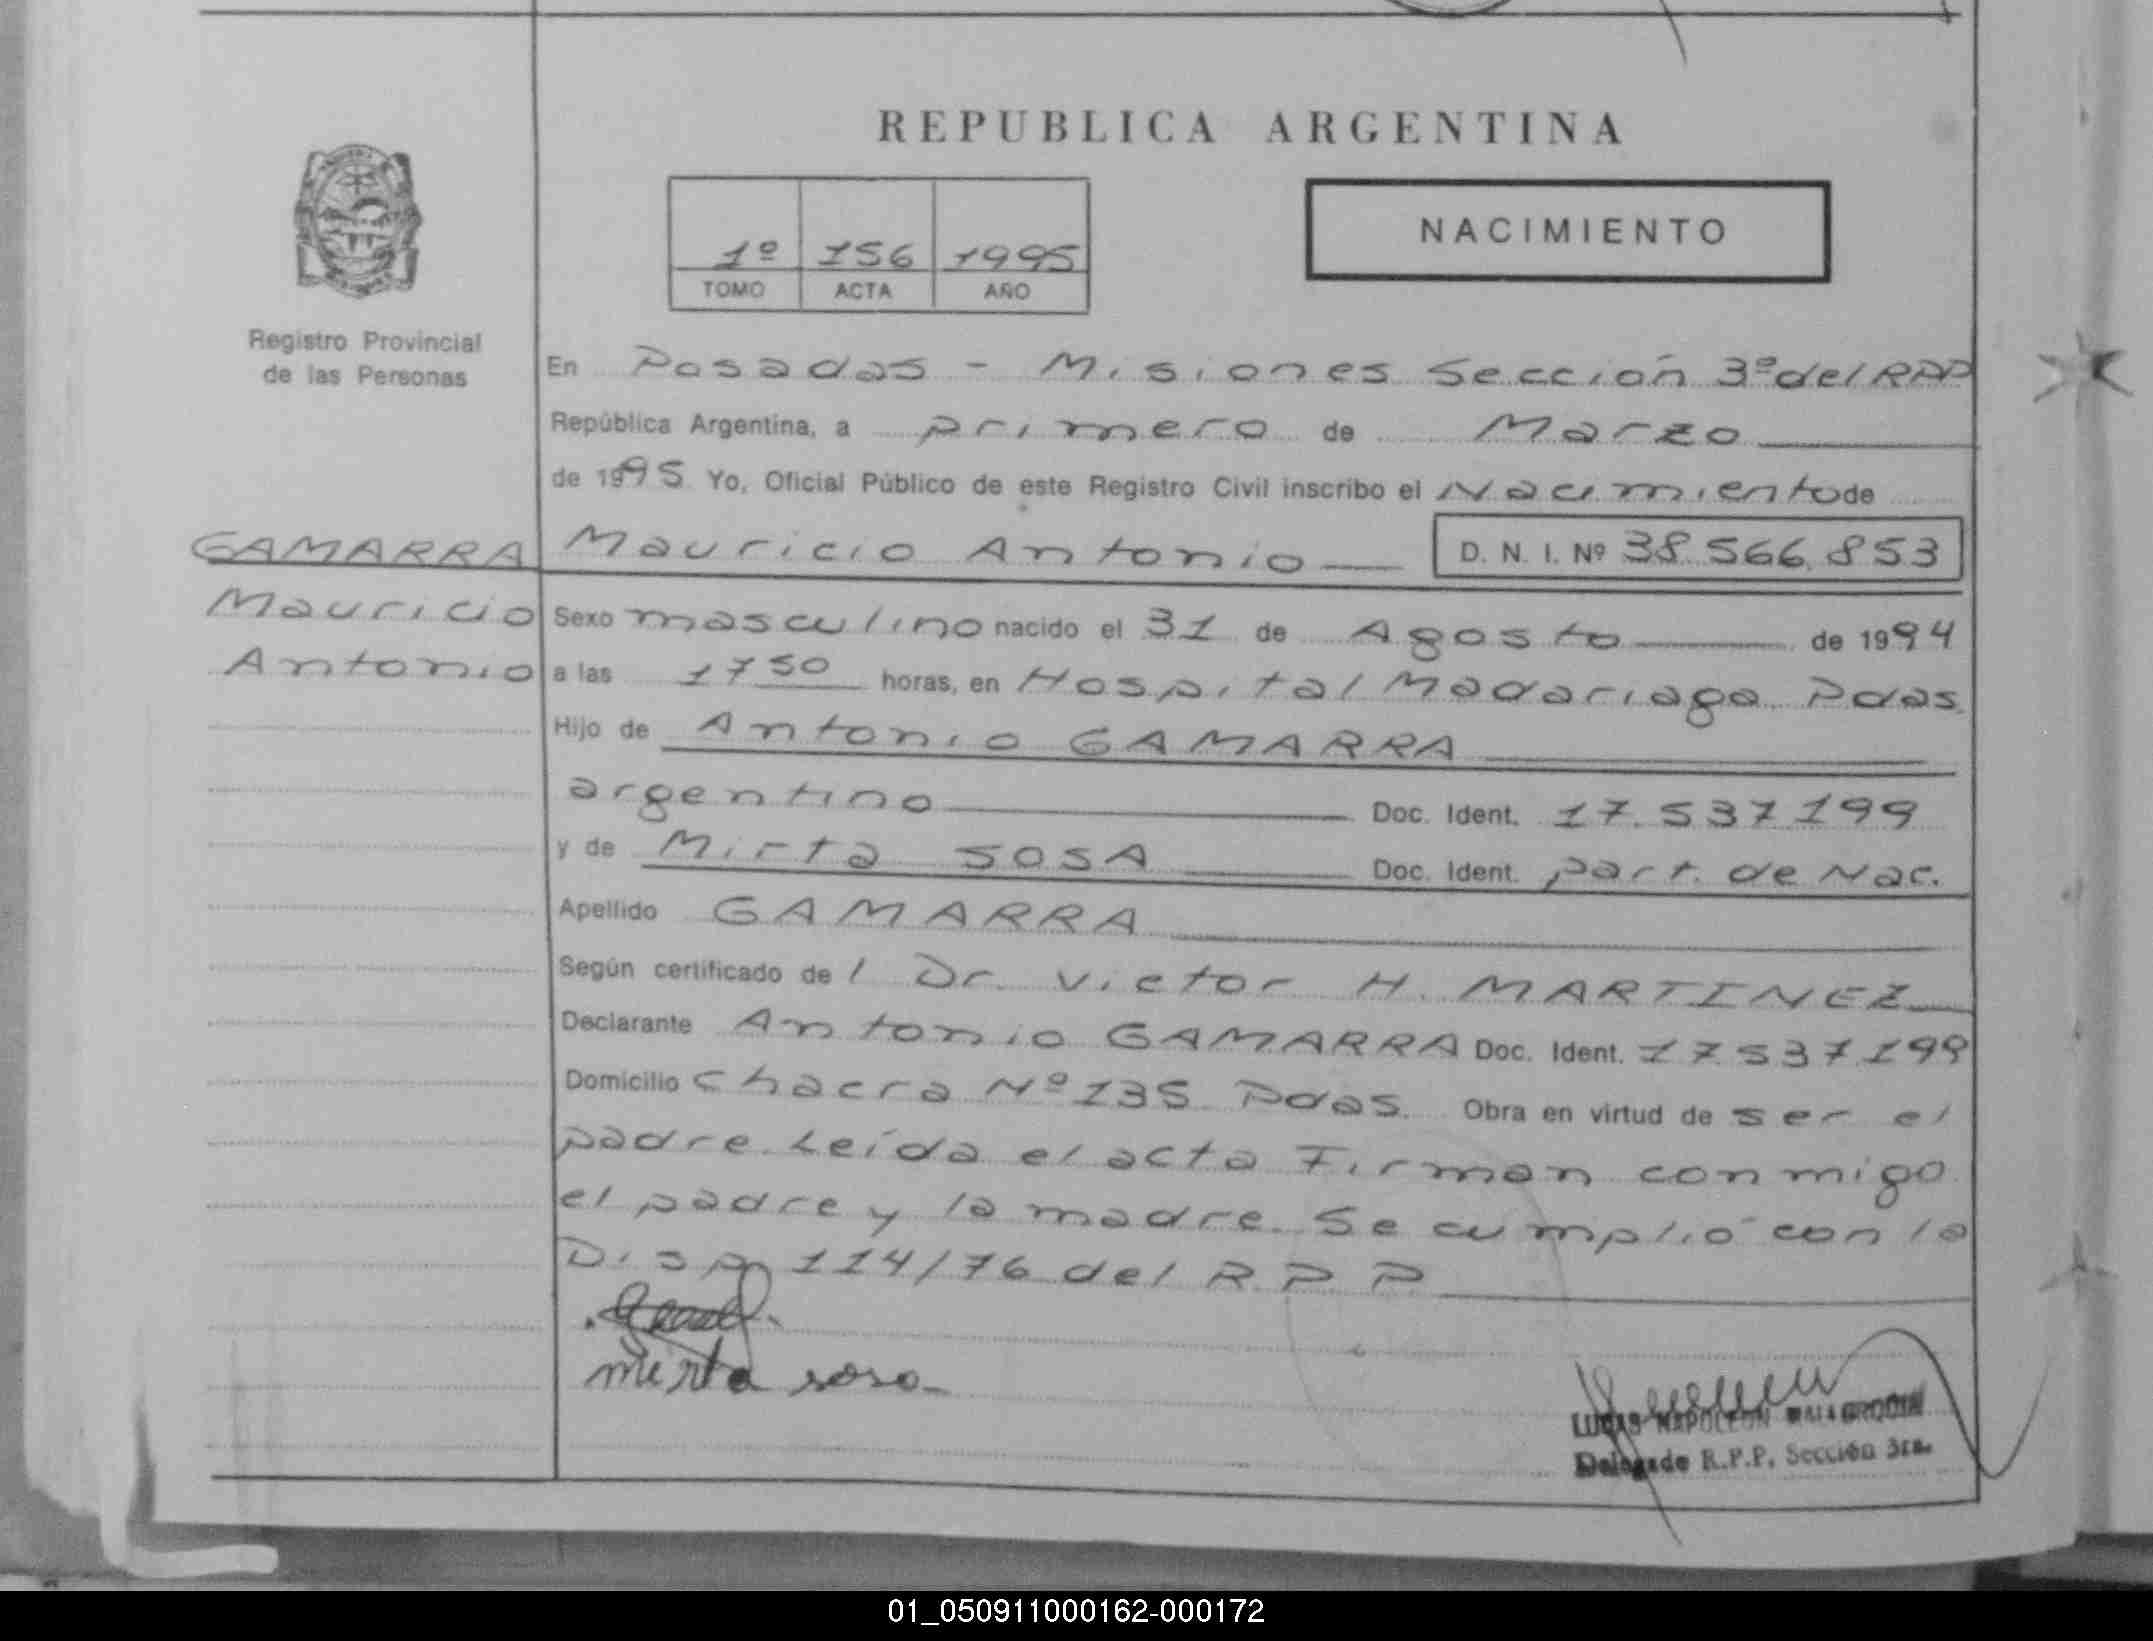 REPUBLICA ARGENTINA
NACIMIENTO
1º 156 1995
TOMO ACTA AÑO
Registro Provincial
de las Personas
En Posadas - Misiones Sección 3º del RPP
República Argentina, a primero de Marzo
de 1995 Yo, Oficial Público de este Registro Civil inscribo el Nacimiento de
GAMARRA Mauricio Antonio D. N. I. Nº 38.566.853
Mauricio Sexo masculino nacido el 31 de Agosto de 1994
Antonio a las 1750 horas, en Hospital Madariaga Pdas.
Hijo de Antonio GAMARRA
argentino Doc. Ident. 17.537199
y de Mirta SOSA Doc. Ident. part. de Nac.
Apellido GAMARRA
Según certificado de l Dr. Victor H. MARTINEZ
Declarante Antonio GAMARRA Doc. Ident. 17.537.199
Domicilio Chacra Nº 135 Pdas. Obra en virtud de ser el
padre. Leída el acta Firman conmigo
el padre y la madre. Se cumplió con la
Disp. 114/76 del R.P.P.
mirta sosa
LUCAS NAPOLEON
Delegado R.P.P. Sección 3ra.
01_050911000162-000172